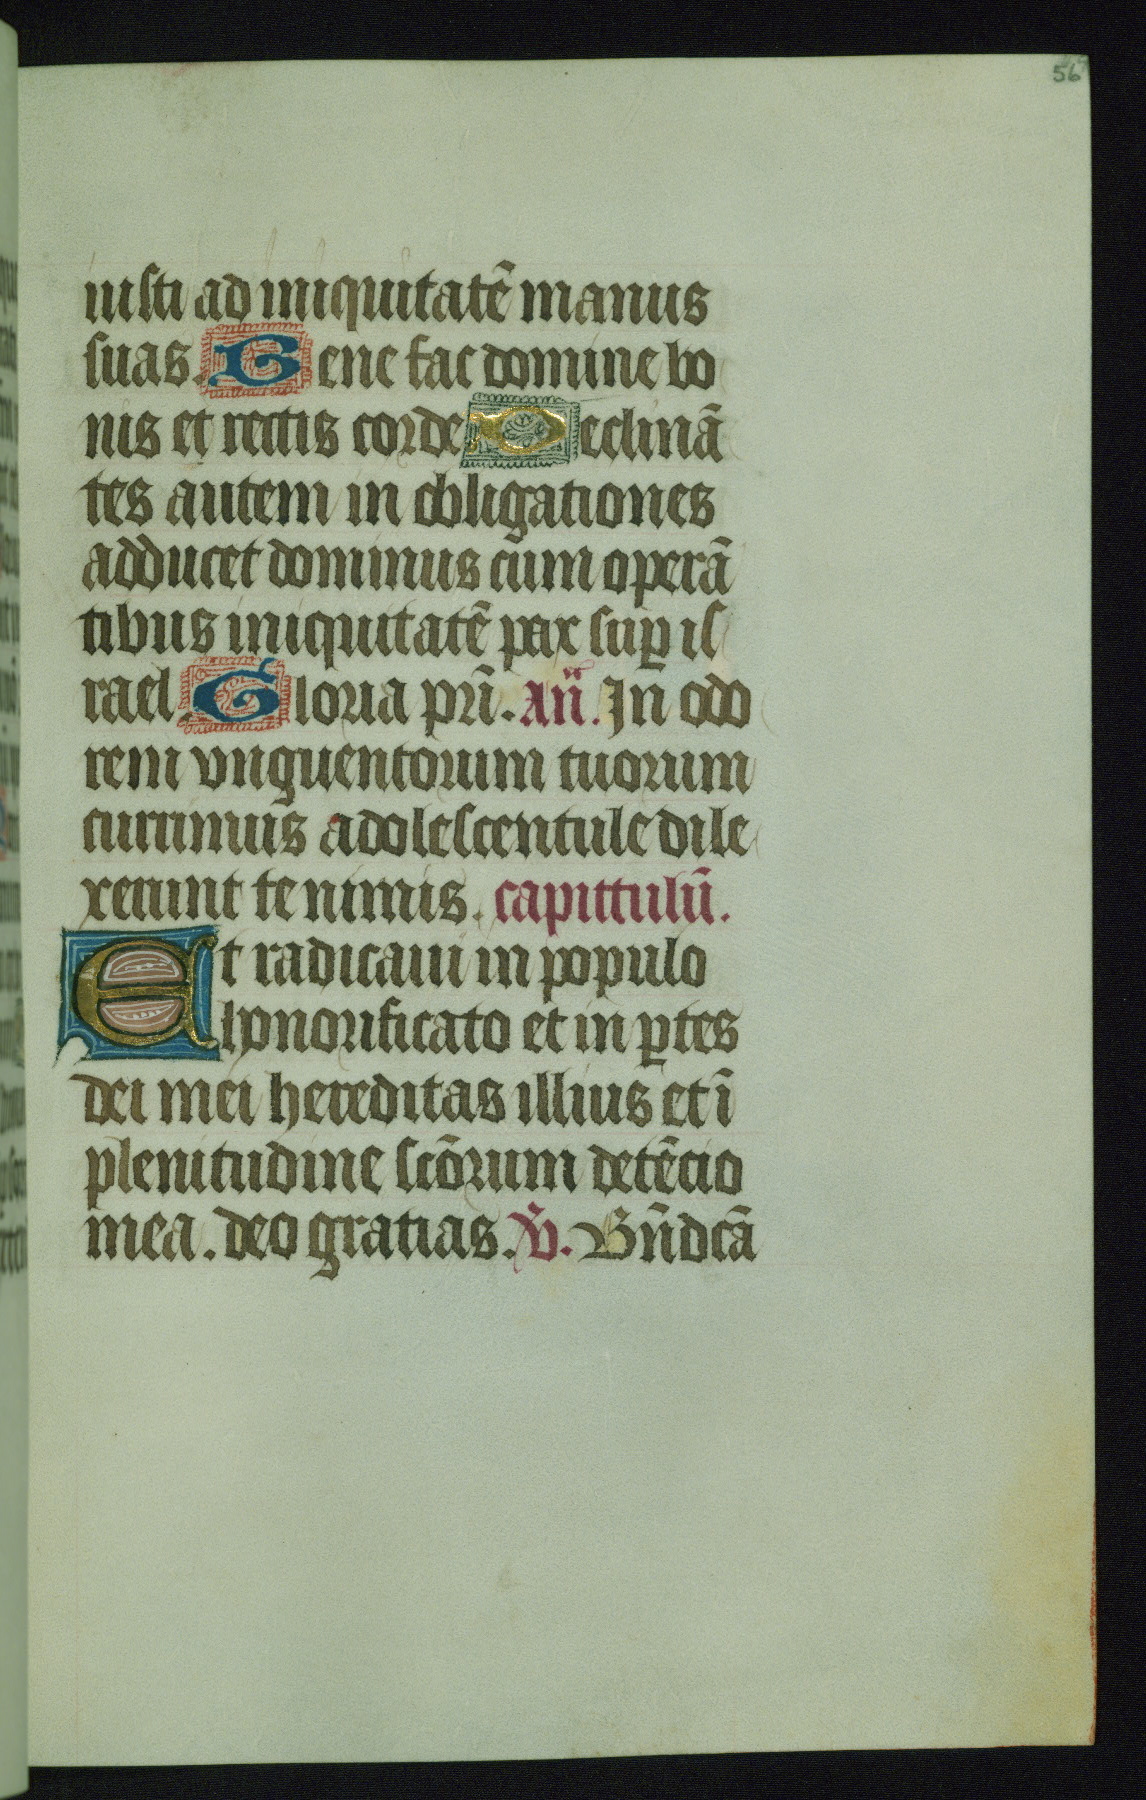 56
iusti ad iniquitatē manus
suas. Bene fac domine bo
nis et rectis corde Declinā
tes autem in obligationes
adducet dominus cum operā
tibus iniquitatē pax suꝑ is
rael. Gloria pr̄i. an̄. In odo
rem vnguentorum tuorum
currimus adolescentule dile
xerunt te nimis. capittulū.
Et radicaui in populo
honorificato et in ꝑtes
dei mei hereditas illius et ī
plenitudine scōrum detēcio
mea. deo gratias. v̄. Bn̄dcā